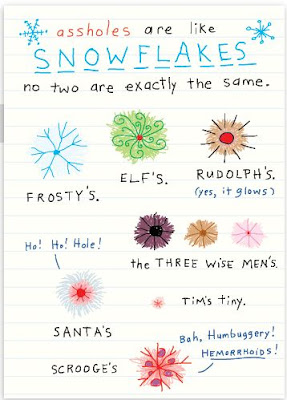 assholes are like
SNOWFLAKES
no two are exactly the same.
FROSTY'S.
ELF'S.
RUDOLPH'S.
(yes, it glows)
Ho! Ho! Hole!
the THREE WISE MEN'S.
TIM'S tiny.
SANTA'S
Bah, Humbuggery!
HEMORRHOIDS!
SCROOGE'S